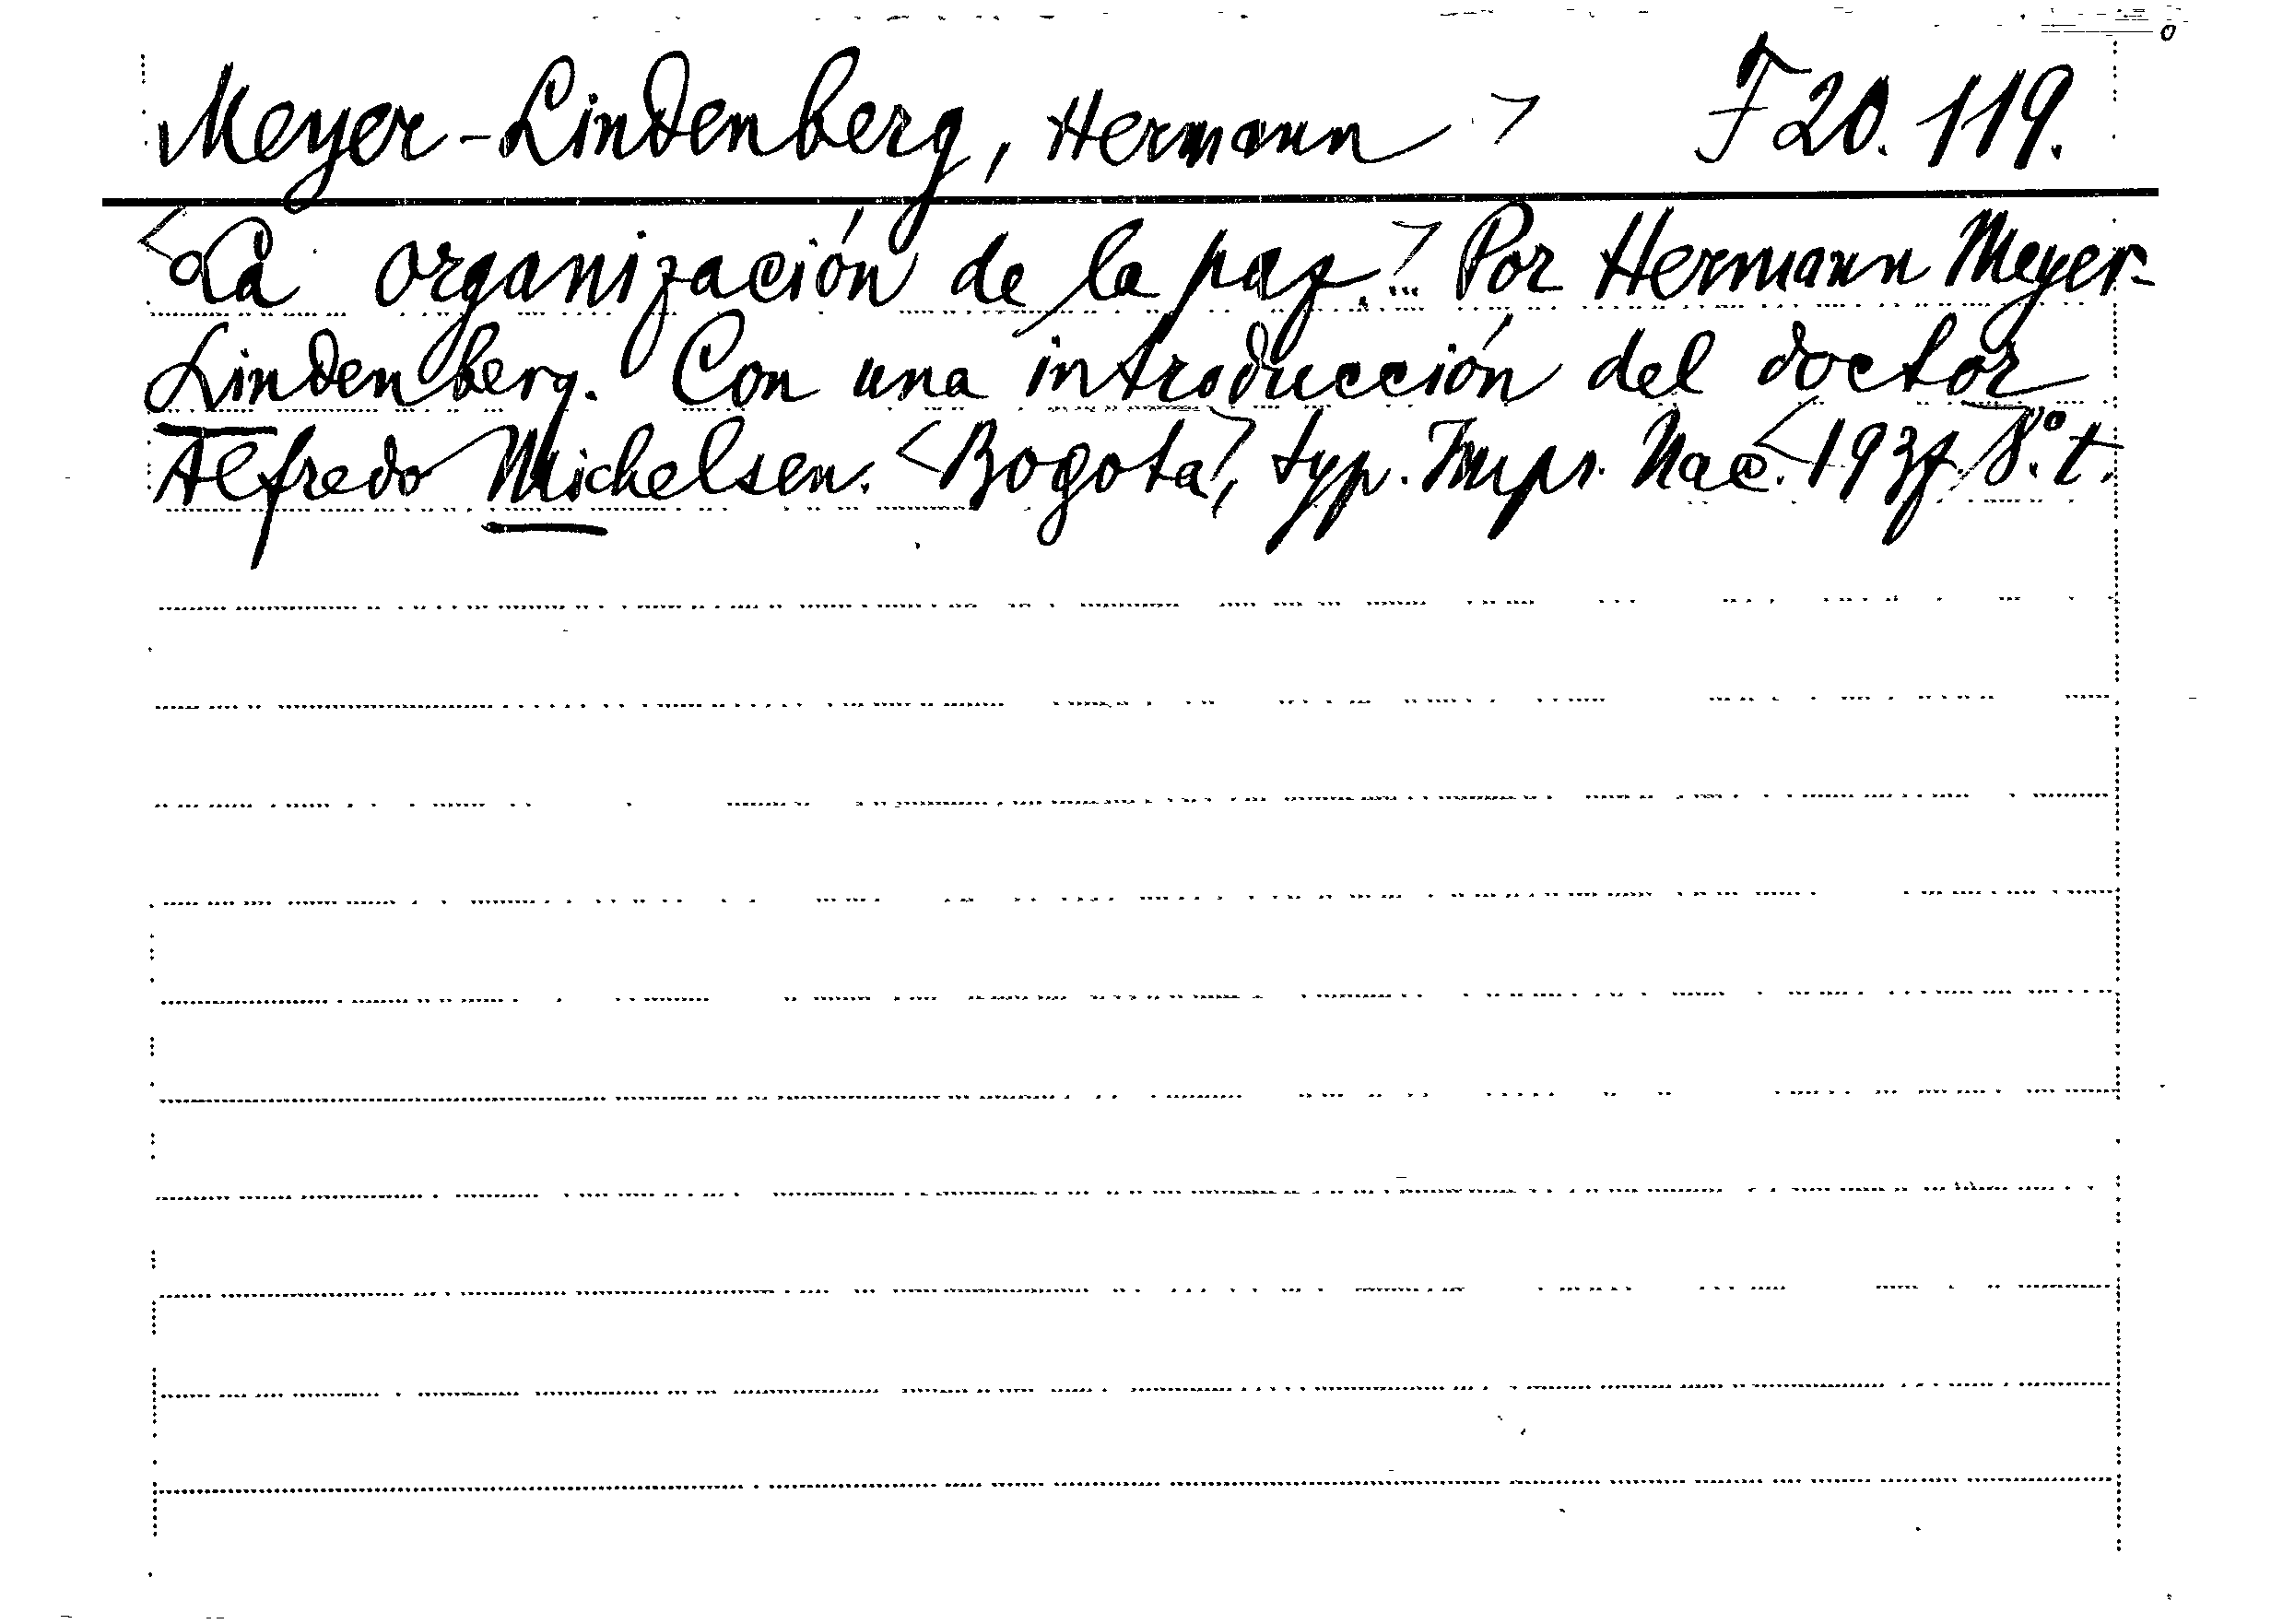 Meyer-Lindenberg, Hermann > F 20.119.
<La organización de la paz.> Por Hermann Meyer-
Lindenberg. Con una introducción del doctor
Alfredo Michelsen. <Bogotá>, typ. Impr. Nac. <1937> 8:o t.